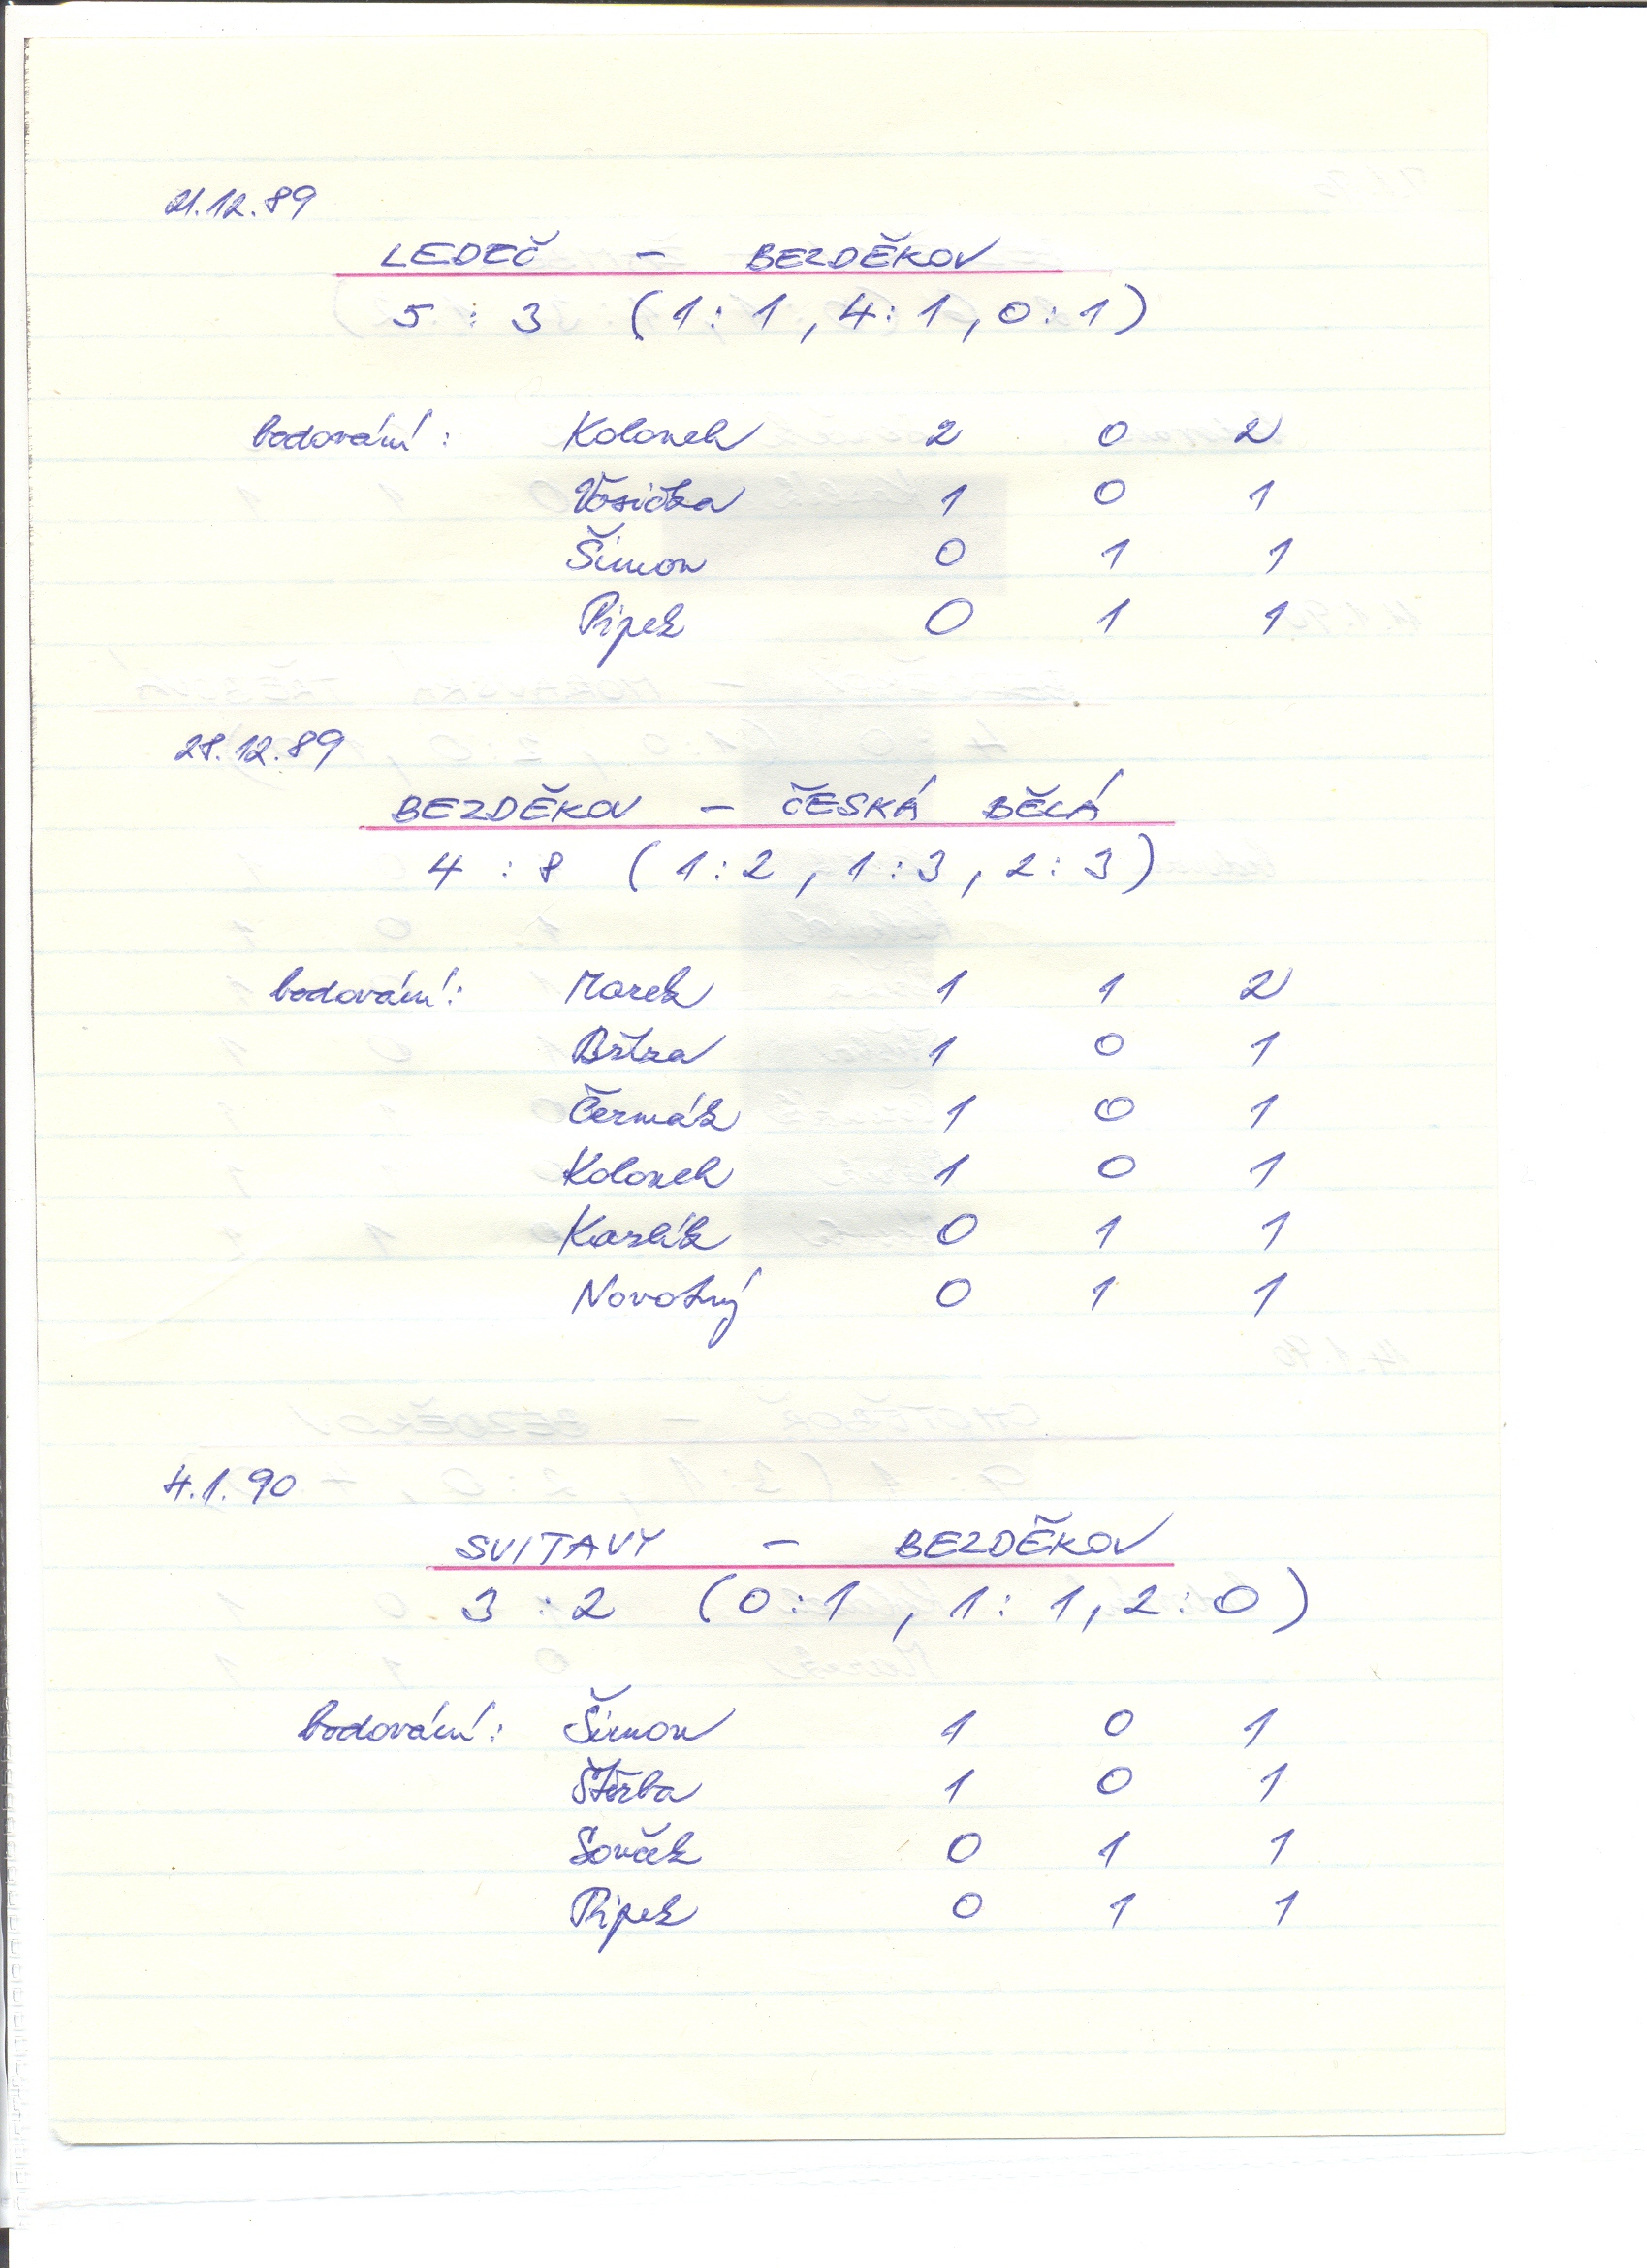 21.12.89
LEDEČ - BEZDĚKOV
5 : 3 (1:1, 4:1, 0:1)
bodování: Kolouch 2 0 2
Vosička 1 0 1
Šimon 0 1 1
Pipek 0 1 1
28.12.89
BEZDĚKOV - ČESKÁ BĚLÁ
4 : 8 (1:2, 1:3, 2:3)
bodování: Marek 1 1 2
1 0 1
Čermák 1 0 1
Kolouch 1 0 1
Karlík 0 1 1
Novotný 0 1 1
4.1.90
SVITAVY - BEZDĚKOV
3 : 2 (0:1, 1:1, 2:0)
bodování: Šimon 1 0 1
Štěrba 1 0 1
0 1 1
Pipek 0 1 1